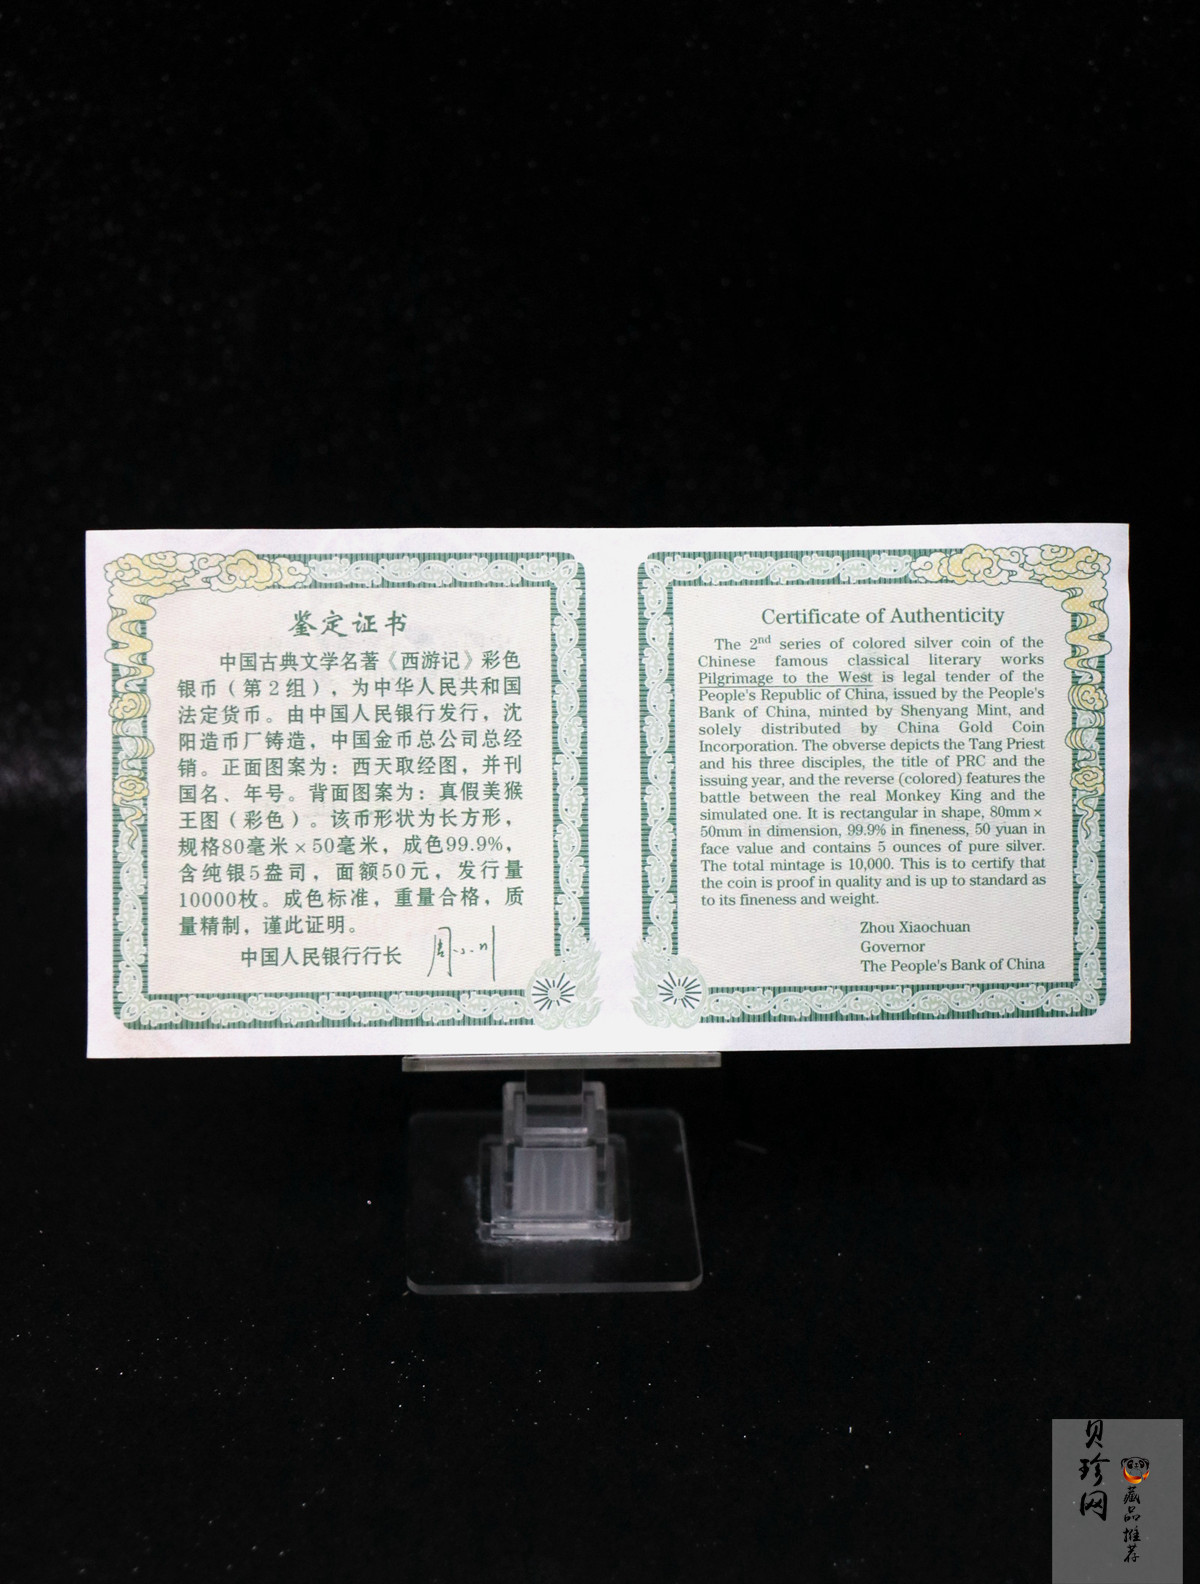 鉴定证书
中国古典文学名著《西游记》彩色
银币（第2组），为中华人民共和国
法定货币。由中国人民银行发行，沈
阳造币厂铸造，中国金币总公司总经
销。正面图案为：西天取经图，并刊
国名、年号。背面图案为：真假美猴
王图（彩色）。该币形状为长方形，
规格80毫米×50毫米，成色99.9%，
含纯银5盎司，面额50元，发行量
10000枚。成色标准，重量合格，质
量精制，谨此证明。
中国人民银行行长 周小川
Certificate of Authenticity
The 2nd series of colored silver coin of the
Chinese famous classical literary works
Pilgrimage to the West is legal tender of the
People's Republic of China, issued by the People's
Bank of China, minted by Shenyang Mint, and
solely distributed by China Gold Coin
Incorporation. The obverse depicts the Tang Priest
and his three disciples, the title of PRC and the
issuing year, and the reverse (colored) features the
battle between the real Monkey King and the
simulated one. It is rectangular in shape, 80mm×
50mm in dimension, 99.9% in fineness, 50 yuan in
face value and contains 5 ounces of pure silver.
The total mintage is 10,000. This is to certify that
the coin is proof in quality and is up to standard as
to its fineness and weight.
Zhou Xiaochuan
Governor
The People's Bank of China
贝珍网
藏品推荐